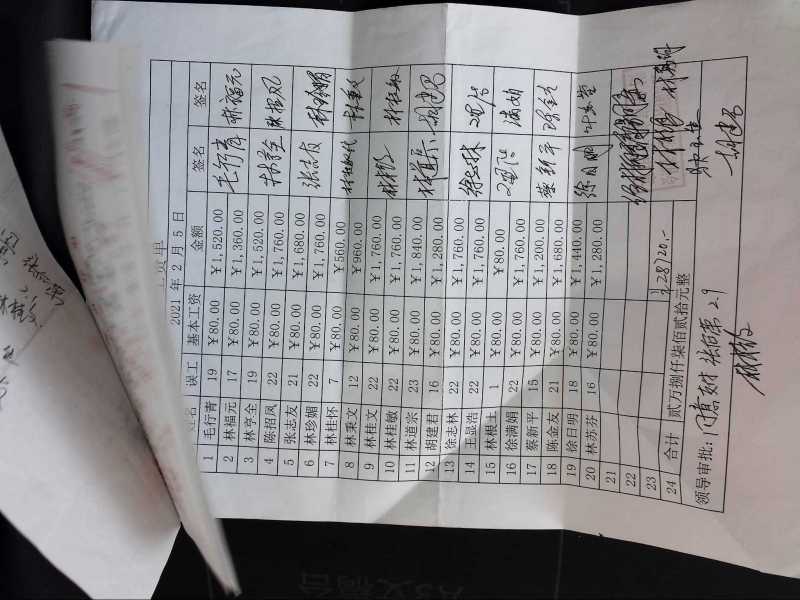 工资单
2021 年 2 月 5 日
姓名 误工 基本工资 金额 签名 签名
1 毛行青 19 ￥80.00 ￥1,520.00 毛行青
2 林福元 17 ￥80.00 ￥1,360.00 林福元
3 林亨全 19 ￥80.00 ￥1,520.00
4 陈招凤 22 ￥80.00 ￥1,760.00
5 张志友 21 ￥80.00 ￥1,680.00 张志友
6 林珍媚 22 ￥80.00 ￥1,760.00
7 林桂怀 7 ￥80.00 ￥560.00
8 林秉文 12 ￥80.00 ￥960.00
9 林桂文 22 ￥80.00 ￥1,760.00
10 林桂敏 22 ￥80.00 ￥1,760.00 林桂敏
11 林道宗 23 ￥80.00 ￥1,840.00 林道宗
12 胡建君 16 ￥80.00 ￥1,280.00 胡建君
13 徐志林 22 ￥80.00 ￥1,760.00 徐志林
14 王显浩 22 ￥80.00 ￥1,760.00
15 林根土 1 ￥80.00 ￥80.00
16 徐满娟 22 ￥80.00 ￥1,760.00 满娟
17 蔡新平 15 ￥80.00 ￥1,200.00 蔡新平
18 陈金友 21 ￥80.00 ￥1,680.00 陈金友
19 徐日明 18 ￥80.00 ￥1,440.00 徐日明
20 林苏芬 16 ￥80.00 ￥1,280.00
21
22
23 ￥28720.-
24 合计 贰万捌仟柒佰贰拾元整
领导审批: 同意支付 2.9